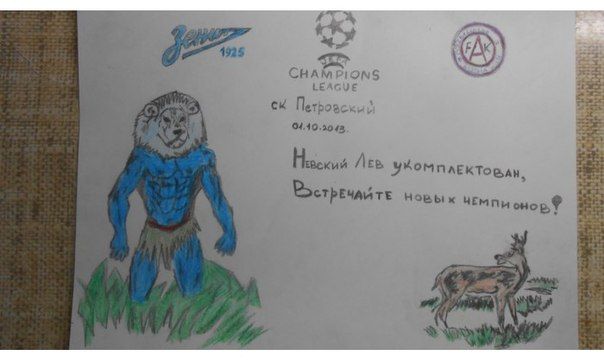 Зенит
1925
UEFA
CHAMPIONS
LEAGUE
FAK
ск Петровский
01.10.2013.
Невский Лев укомплектован,
Встречайте новых чемпионов!